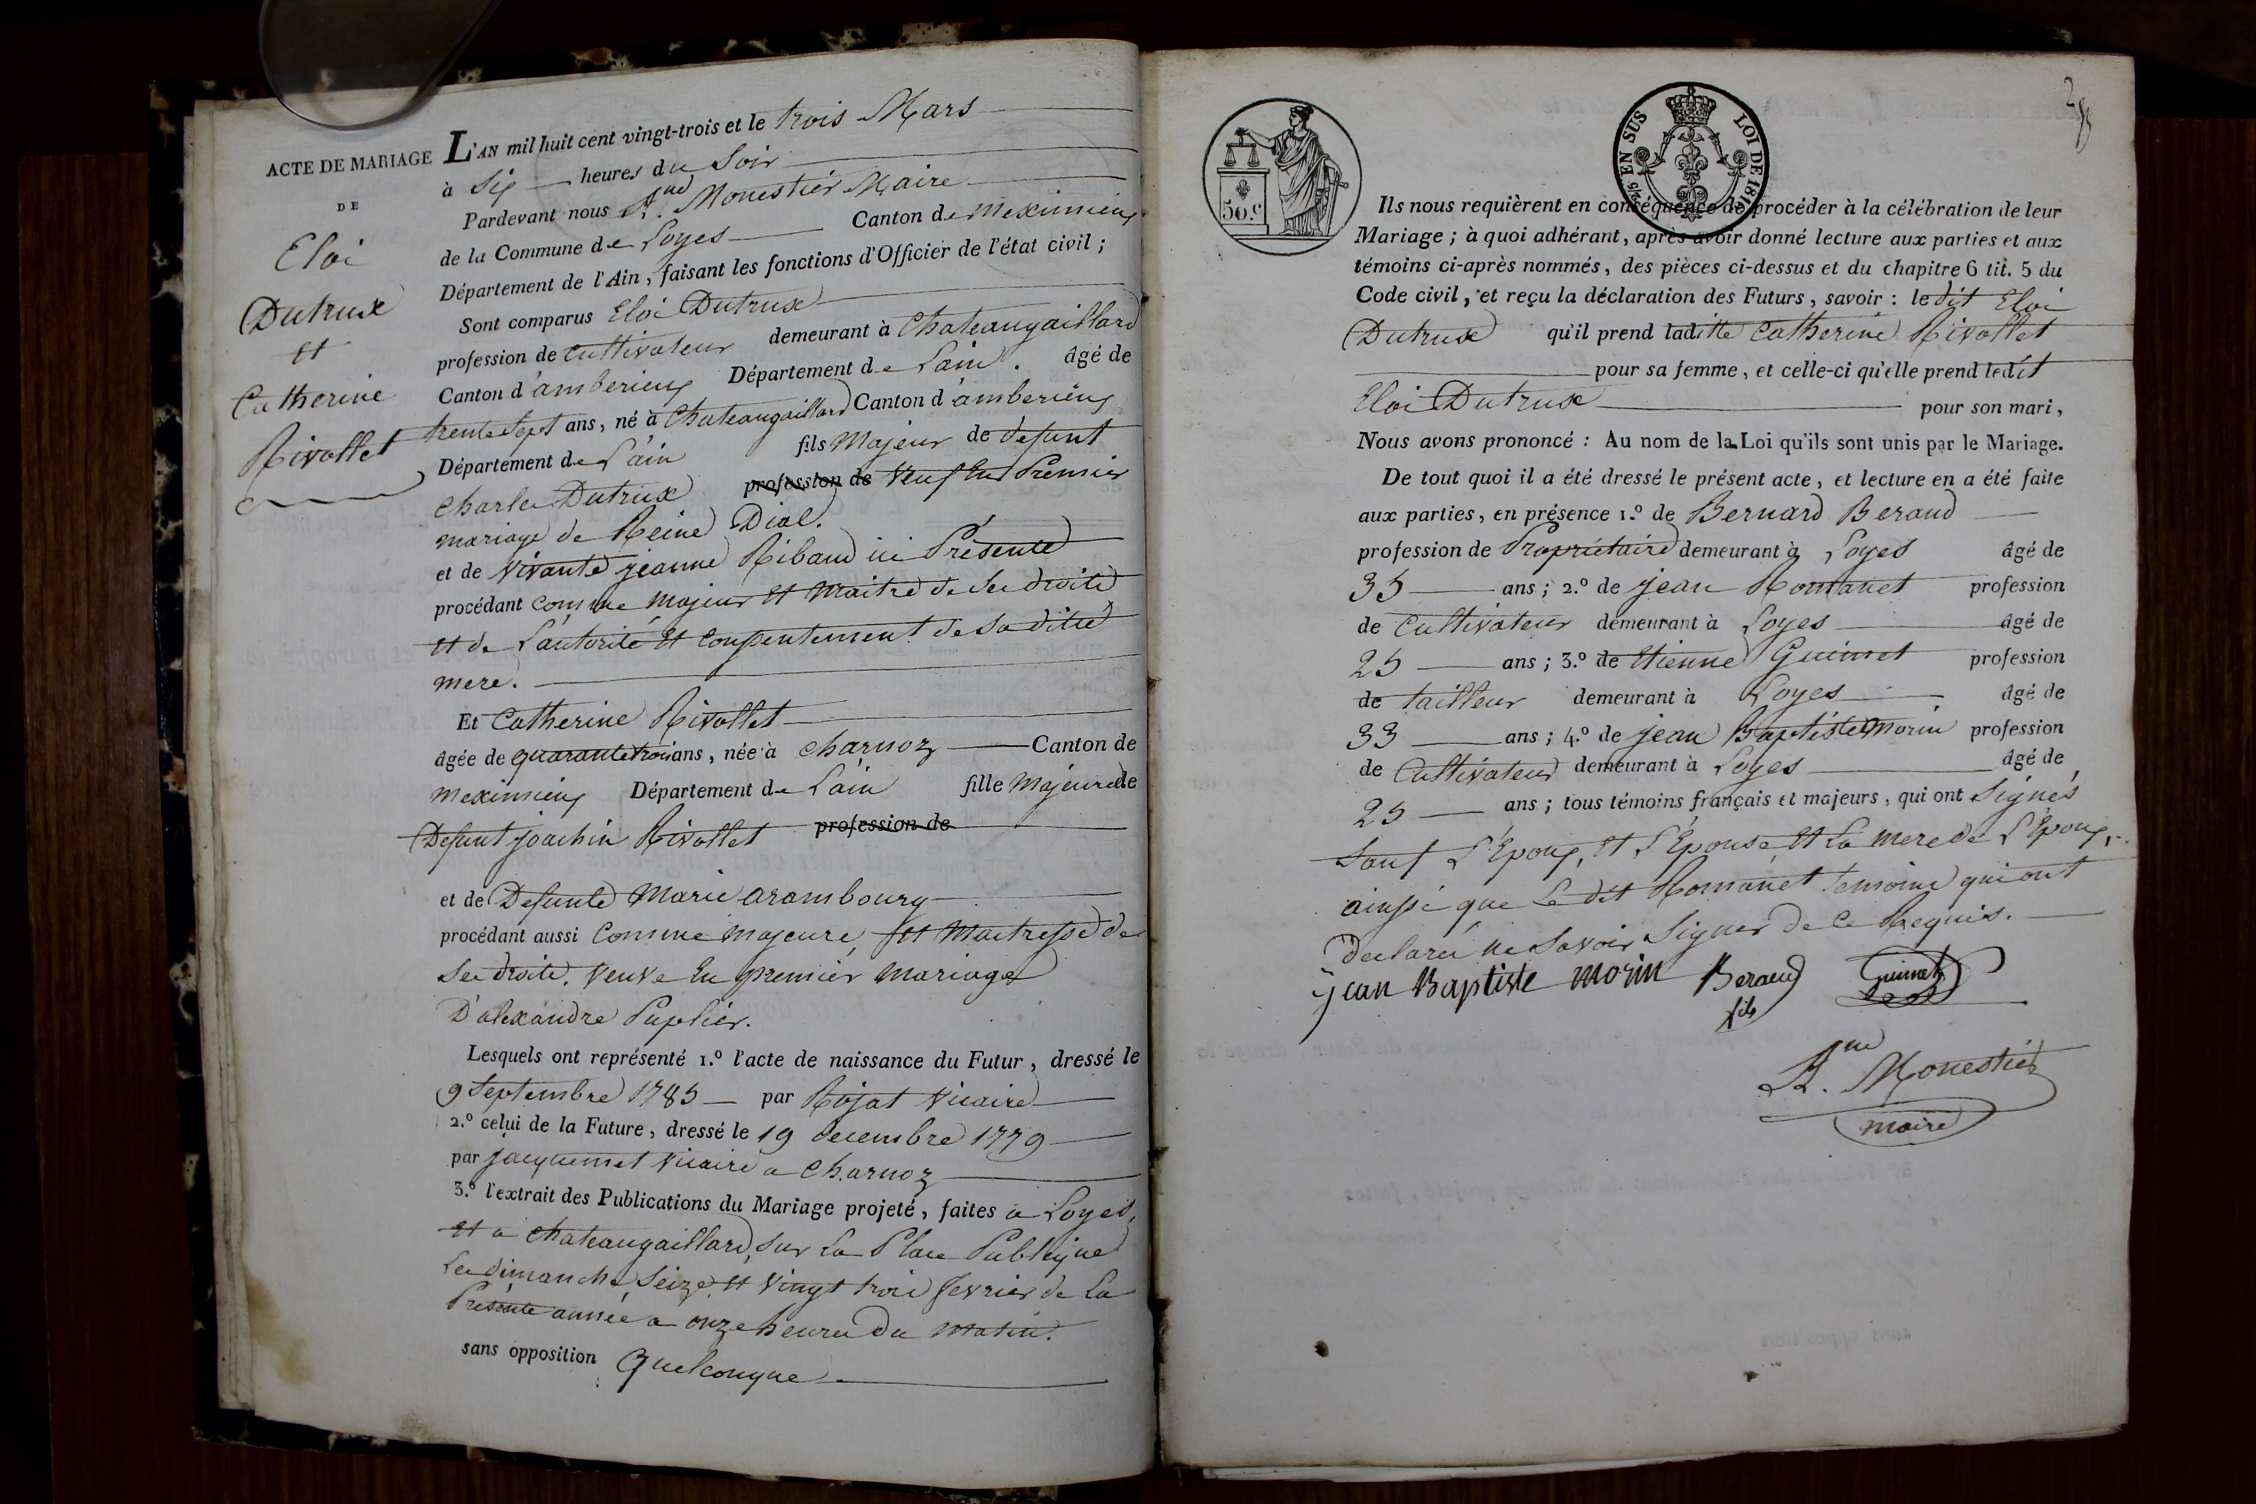 ACTE DE MARIAGE
DE
Eloi
Dutrux
et
Catherine
Rivollet
L'AN mil huit cent vingt-trois et le trois Mars
à Six heures du Soir
Pardevant nous A.ne Monestier Maire
de la Commune de Loyes Canton de Meximieux
Département de l'Ain, faisant les fonctions d'Officier de l'état civil ;
Sont comparus Eloi Dutrux
profession de cultivateur demeurant à Chateaugaillard
Canton d'amberieux Département de Lain. âgé de
trente sept ans, né à Chateaugaillard Canton d'amberieux
Département de L'ain fils Majeur de defunt
Charles Dutrux profession de Veuf En Premier
mariage de Reine Dial.
et de vivante jeanne Ribaud ici Présente
procédant comme majeur et maitre de Ses droits
et de L'autorité et consentement de sa ditte
mere.
Et Catherine Rivollet
âgée de quarante trois ans, née à charnoz Canton de
meximieux Département de L'ain fille Majeure de
Defunt joachin Rivollet profession de
et de Defunte Marie arambourg
procédant aussi Comme majeure, et Maitresse de
Ses droits. Veuve En premier mariage
D'alexandre Puplier.
Lesquels ont représenté 1.º l'acte de naissance du Futur, dressé le
9 Septembre 1785 par Rojat Vicaire
2.º celui de la Future, dressé le 19 decembre 1779
par jacquemet Vicaire a Charnoz
3.º l'extrait des Publications du Mariage projeté, faites a Loyes,
et a chateaugaillard, sur La Place Publique
Les dimanche Seize et Vingt trois fevrier de La
Présente année a onze heures du matin.
sans opposition Quelconque
50.c
5/25 EN SUS LOI DE 1816
Ils nous requièrent en conséquence de procéder à la célébration de leur
Mariage ; à quoi adhérant, après avoir donné lecture aux parties et aux
témoins ci-après nommés, des pièces ci-dessus et du chapitre 6 tit. 5 du
Code civil, et reçu la déclaration des Futurs, savoir : le dit Eloi
Dutrux qu'il prend laditte Catherine Rivollet
pour sa femme, et celle-ci qu'elle prend ledit
Eloi Dutrux pour son mari,
Nous avons prononcé : Au nom de la Loi qu'ils sont unis par le Mariage.
De tout quoi il a été dressé le présent acte, et lecture en a été faite
aux parties, en présence 1.º de Bernard Beraud
profession de Propriétaire demeurant à Loyes âgé de
35 ans ; 2.º de jean Romanet profession
de Cultivateur demeurant à Loyes âgé de
25 ans ; 3.º de Etienne Guimet profession
de tailleur demeurant à Loyes âgé de
33 ans ; 4.º de jean Baptiste Morin profession
de Cultivateur demeurant à Loyes âgé de
25 ans ; tous témoins français et majeurs, qui ont Signés
Sauf L'Epoux, et L'Epouse et La mere de L'Epoux,
ainssi que Le dit Romanet temoins qui ont
declarés ne Savoir Signer de ce Requis.
jean Baptiste morin Beraud fils Guimet
A.ne Monestier
maire